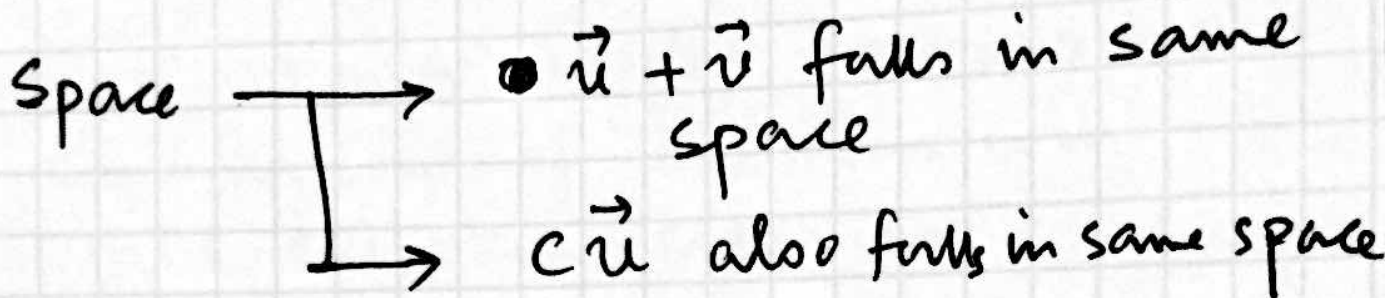 Space → • u⃗ + v⃗ falls in same
space
→ cu⃗ also falls in same space